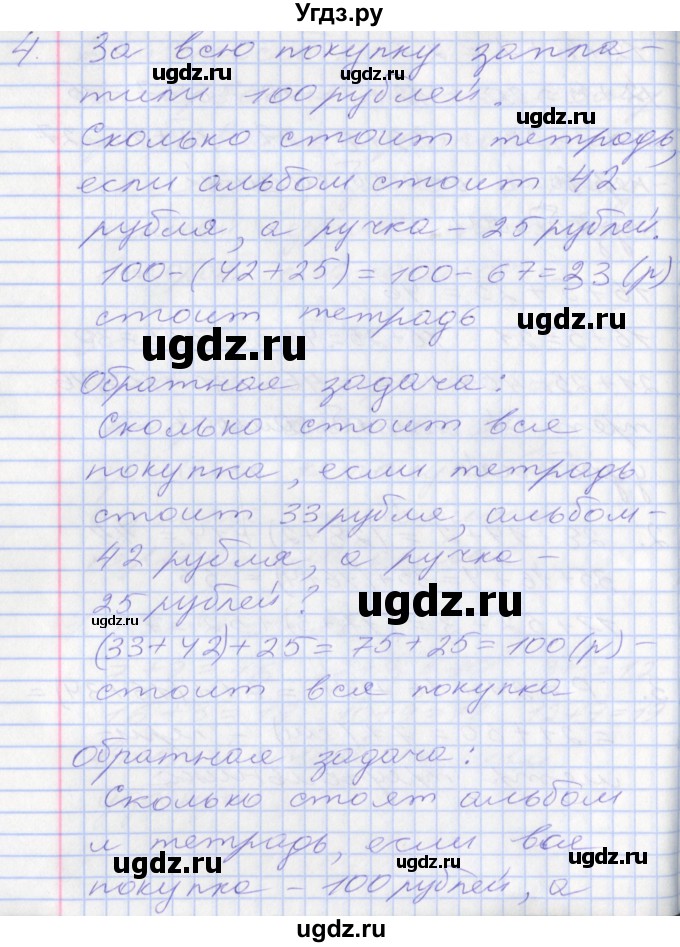 Угдз.ру
4. За всю покупку запла-
ugdz.ru ugdz.ru
тили 100 рублей.
ugdz.ru
Сколько стоит тетрадь,
если альбом стоит 42
рубля, а ручка - 25 рублей.
ugdz.ru
100-(42+25)=100-67=33(р)
стоит тетрадь
ugdz.ru ugdz.ru
Обратная задача:
Сколько стоит вся
покупка, если тетрадь
стоит 33 рубля, альбом-
42 рубля, а ручка -
25 рублей?
ugdz.ru ugdz.ru
(33+42)+25=75+25=100(р)-
стоит вся покупка
Обратная задача:
Сколько стоят альбом
и тетрадь, если вся
ugdz.ru ugdz.ru ugdz.ru
покупка - 100 рублей, а
ugdz.ru